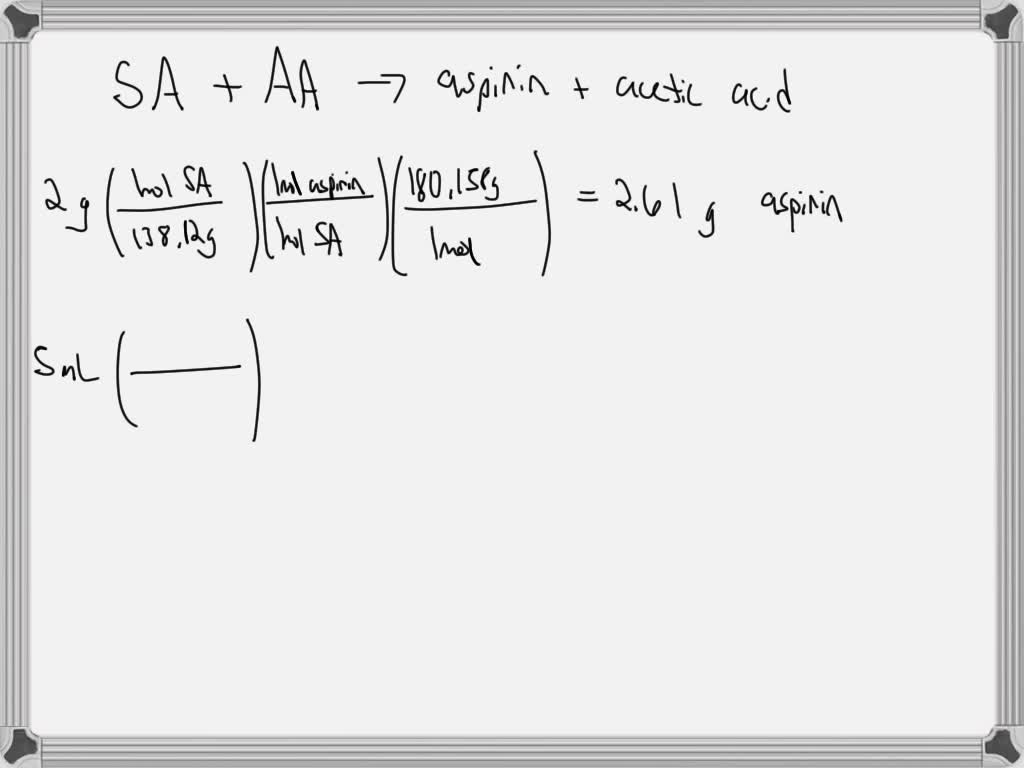 SA + AA → aspirin + acetic acid
2 g (mol SA / 138.12g) (1mol aspirin / mol SA) (180.158g / 1mol) = 2.61 g aspirin
5 mL ( )